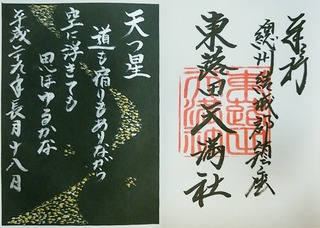 奉拝
總州結城郡鎮座
東蕗田天満社
天つ星
道も宿りもありながら
空に浮きても
思ほゆるかな
平成二十九年長月十八日